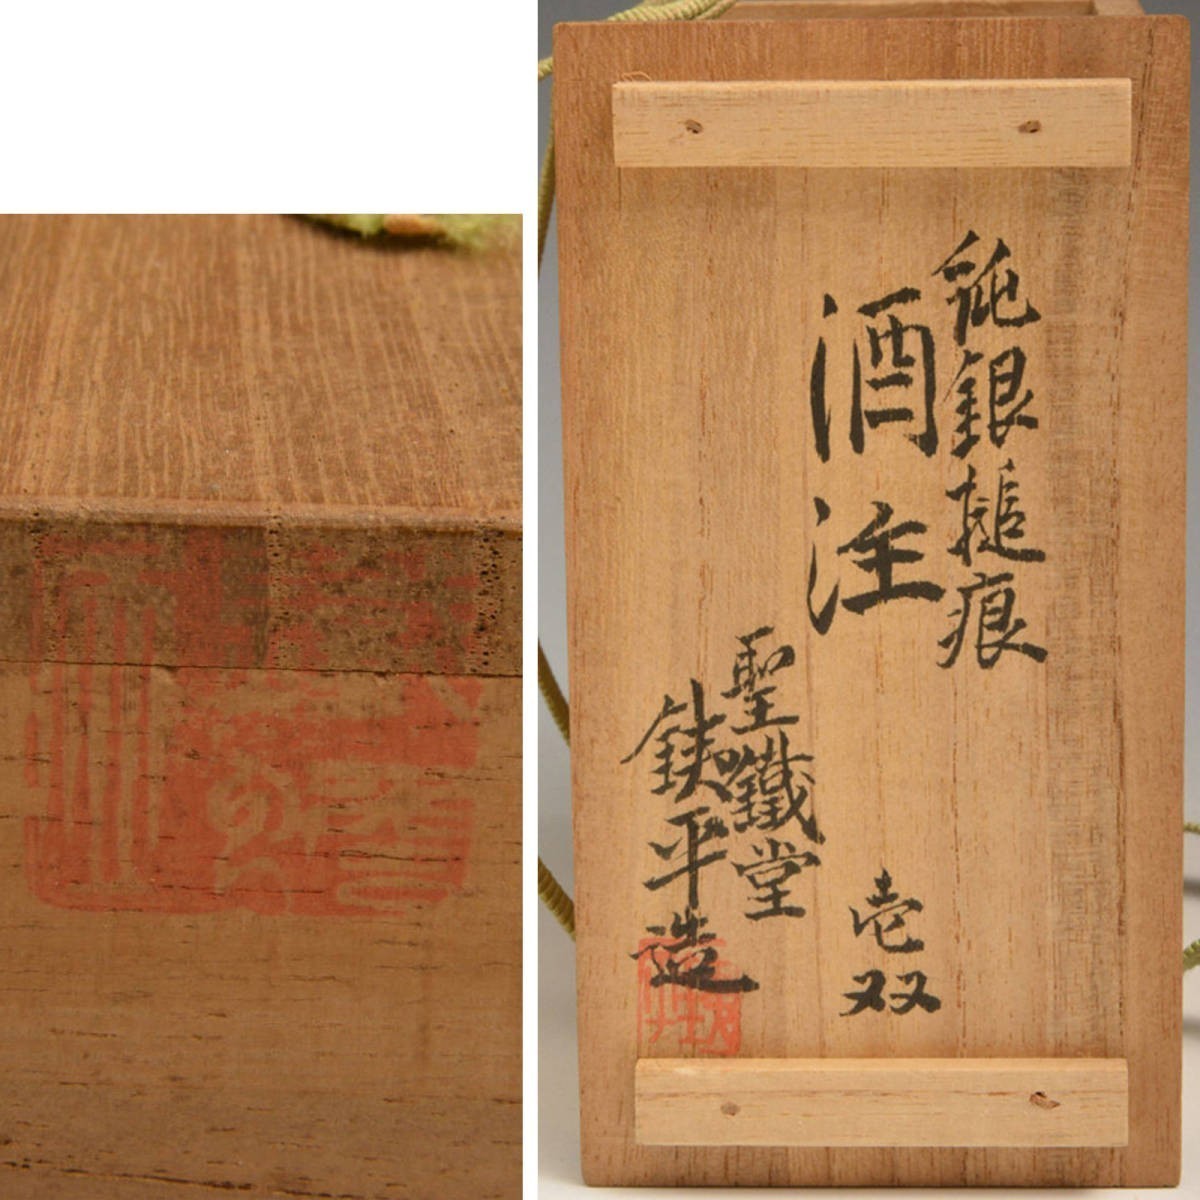 純銀槌痕
酒注
壱双
聖鐵堂
鉄平造